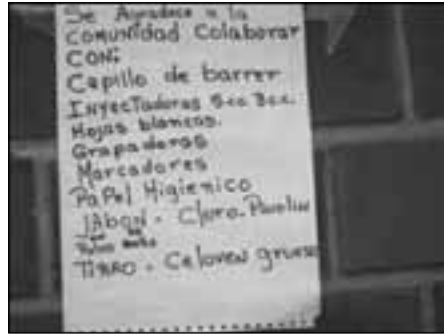 Se Agradece a la
COMUNIDAD Colaborar
CON:
Cepillo de barrer
INYECTADORAS 5cc 3cc.
Hojas blancas.
Grapadoras
Marcadores
PaPel Higienico
JAbON - Cloro -
TIRRO - Celoven grueso